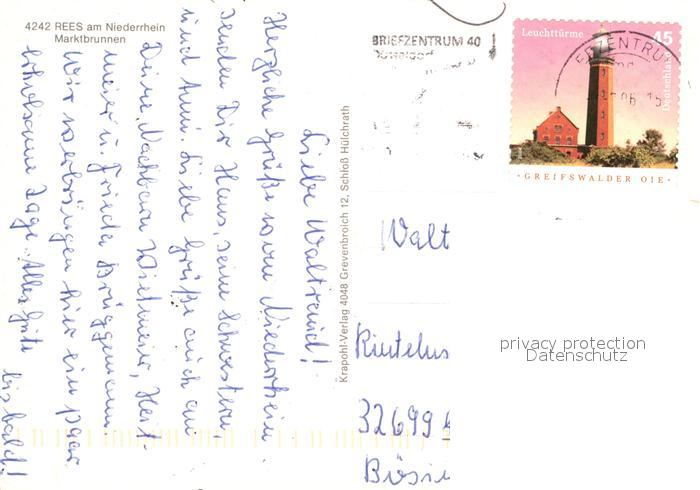 4242 REES am Niederrhein
Marktbrunnen
Liebe Waltraud!
Herzliche Grüße vom Niederrhein
senden Dir Hans, seine Schwestern,
und Anni. Liebe Grüße auch an
Deine Nachbarn Wietmeier, Heit-
meier u. Frieda Brüggemann
Wir verbringen hier ein paar
erholsame Tage. Alles Gute
bis bald!
Krapohl-Verlag 4048 Grevenbroich 12, Schloß Hülchrath
BRIEFZENTRUM 40
Leuchttürme 45
Deutschland
· GREIFSWALDER OIE ·
Walt
Rintelus
32699
Bösin
privacy protection
Datenschutz